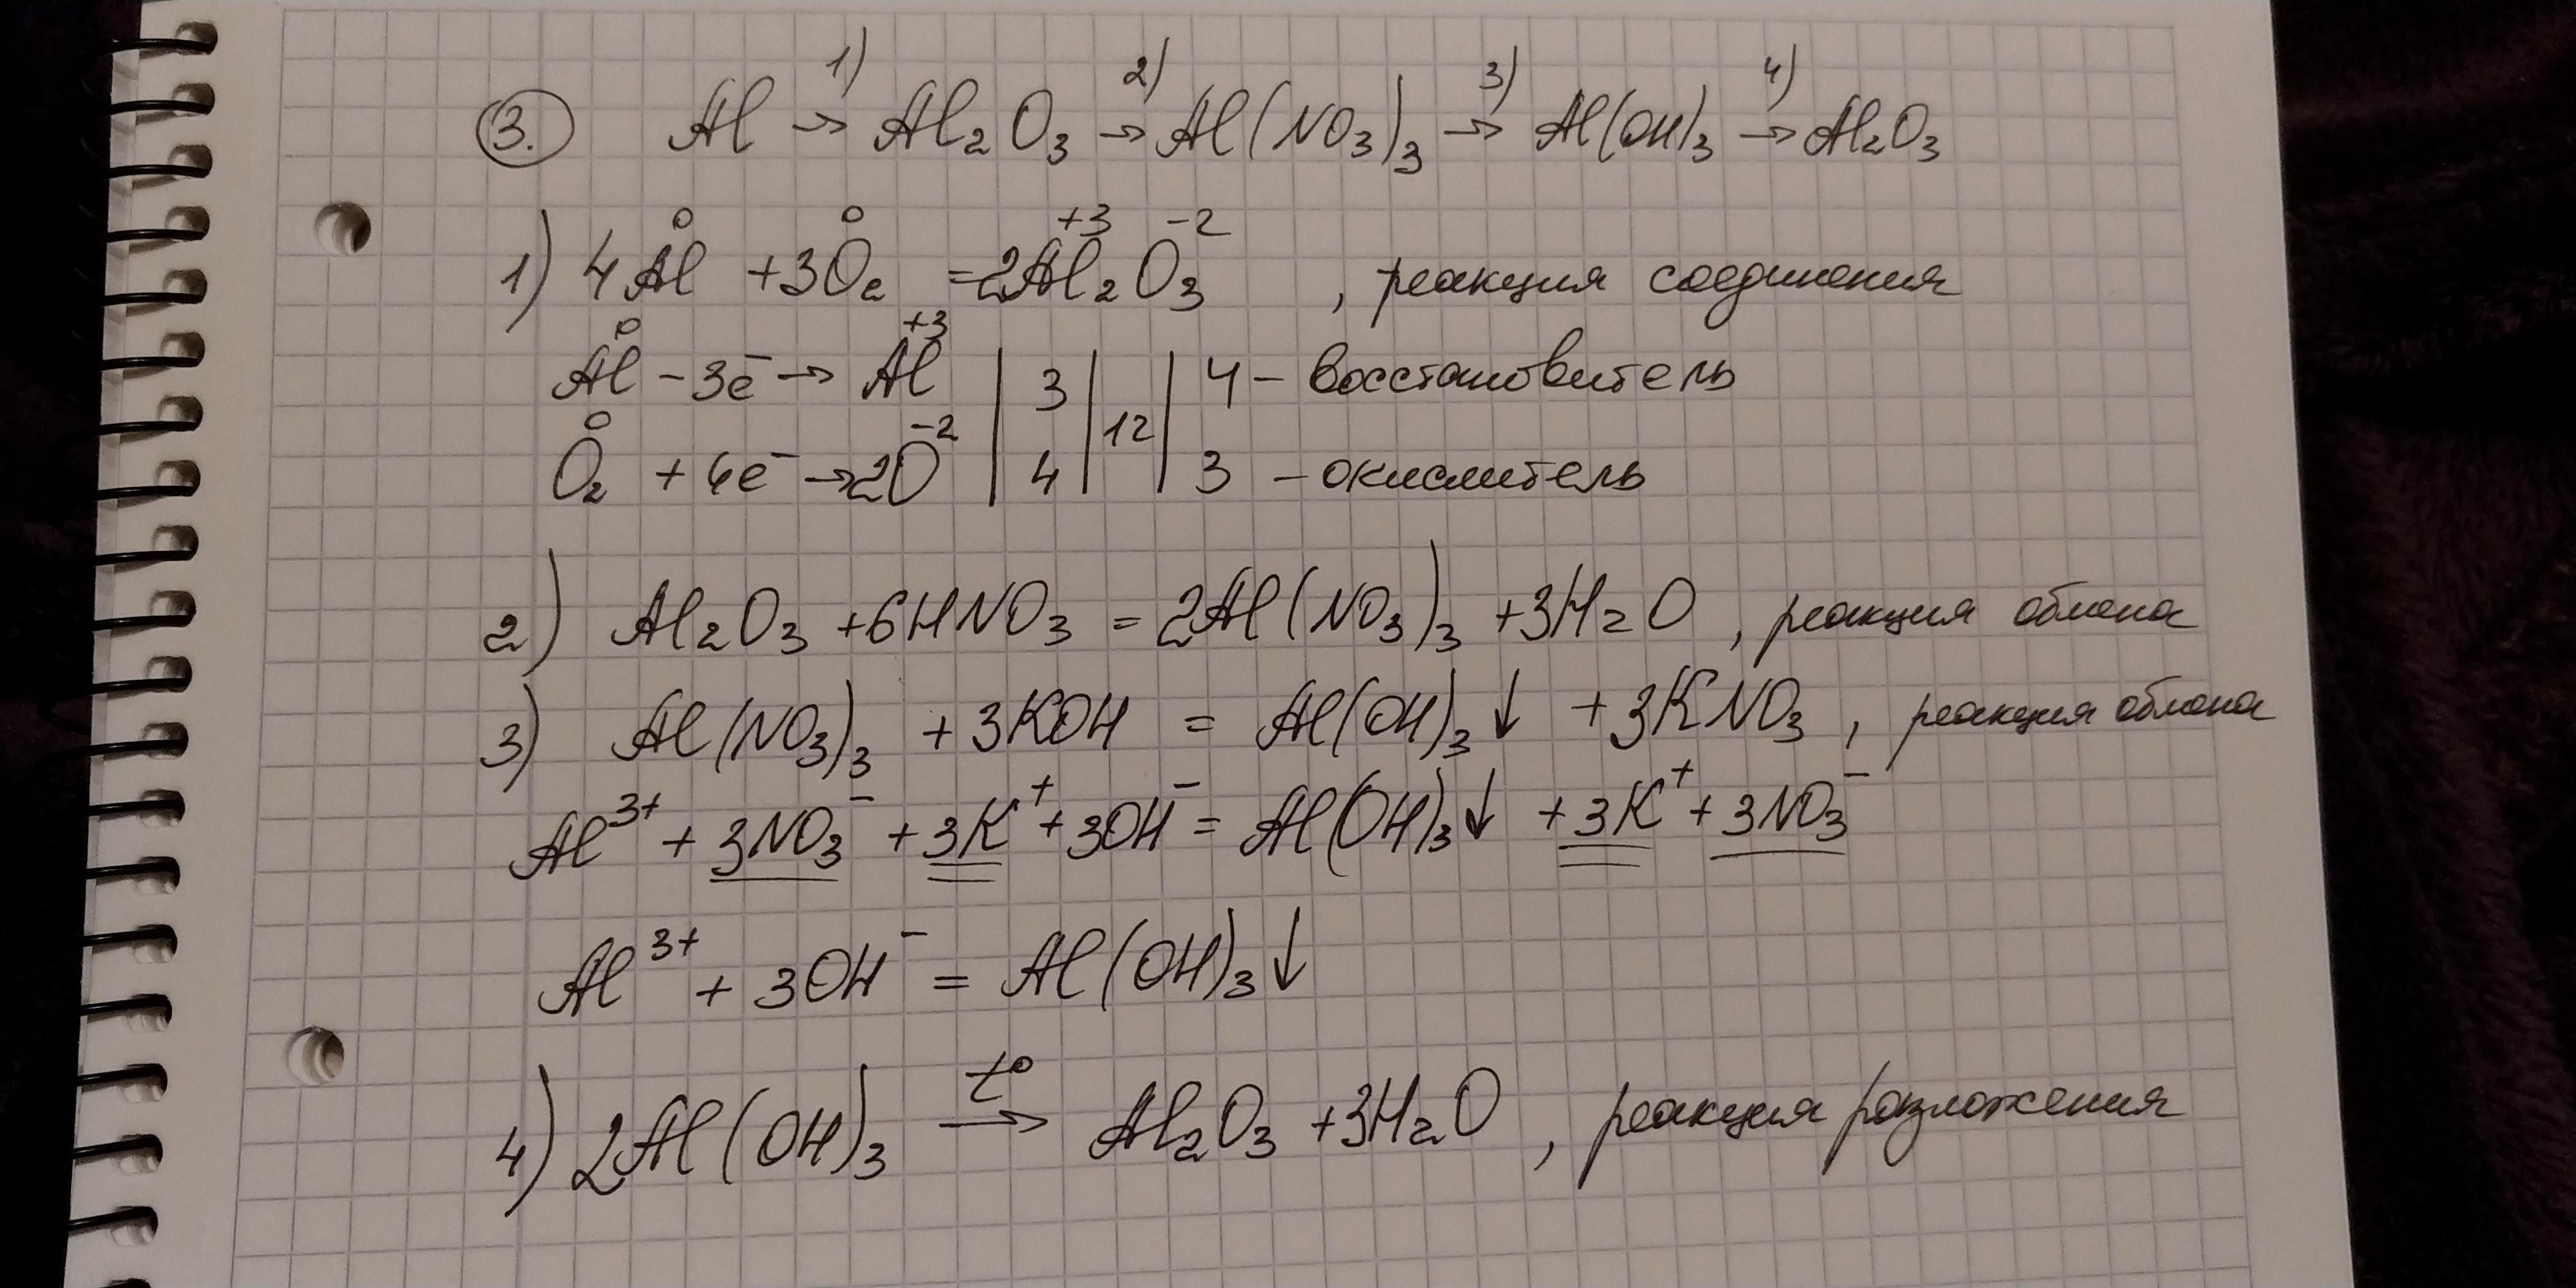 3. Al →1) Al₂O₃ →2) Al(NO₃)₃ →3) Al(OH)₃ →4) Al₂O₃
1) 4Al⁰ + 3O₂⁰ = 2Al₂⁺³O₃⁻², реакция соединения
Al⁰ - 3e⁻ → Al⁺³ | 3 | 12 | 4 - восстановитель
O₂⁰ + 4e⁻ → 2O⁻² | 4 | | 3 - окислитель
2) Al₂O₃ + 6HNO₃ = 2Al(NO₃)₃ + 3H₂O, реакция обмена
3) Al(NO₃)₃ + 3KOH = Al(OH)₃↓ + 3KNO₃, реакция обмена
Al³⁺ + 3NO₃⁻ + 3K⁺ + 3OH⁻ = Al(OH)₃↓ + 3K⁺ + 3NO₃⁻
Al³⁺ + 3OH⁻ = Al(OH)₃↓
4) 2Al(OH)₃ →t° Al₂O₃ + 3H₂O, реакция разложения